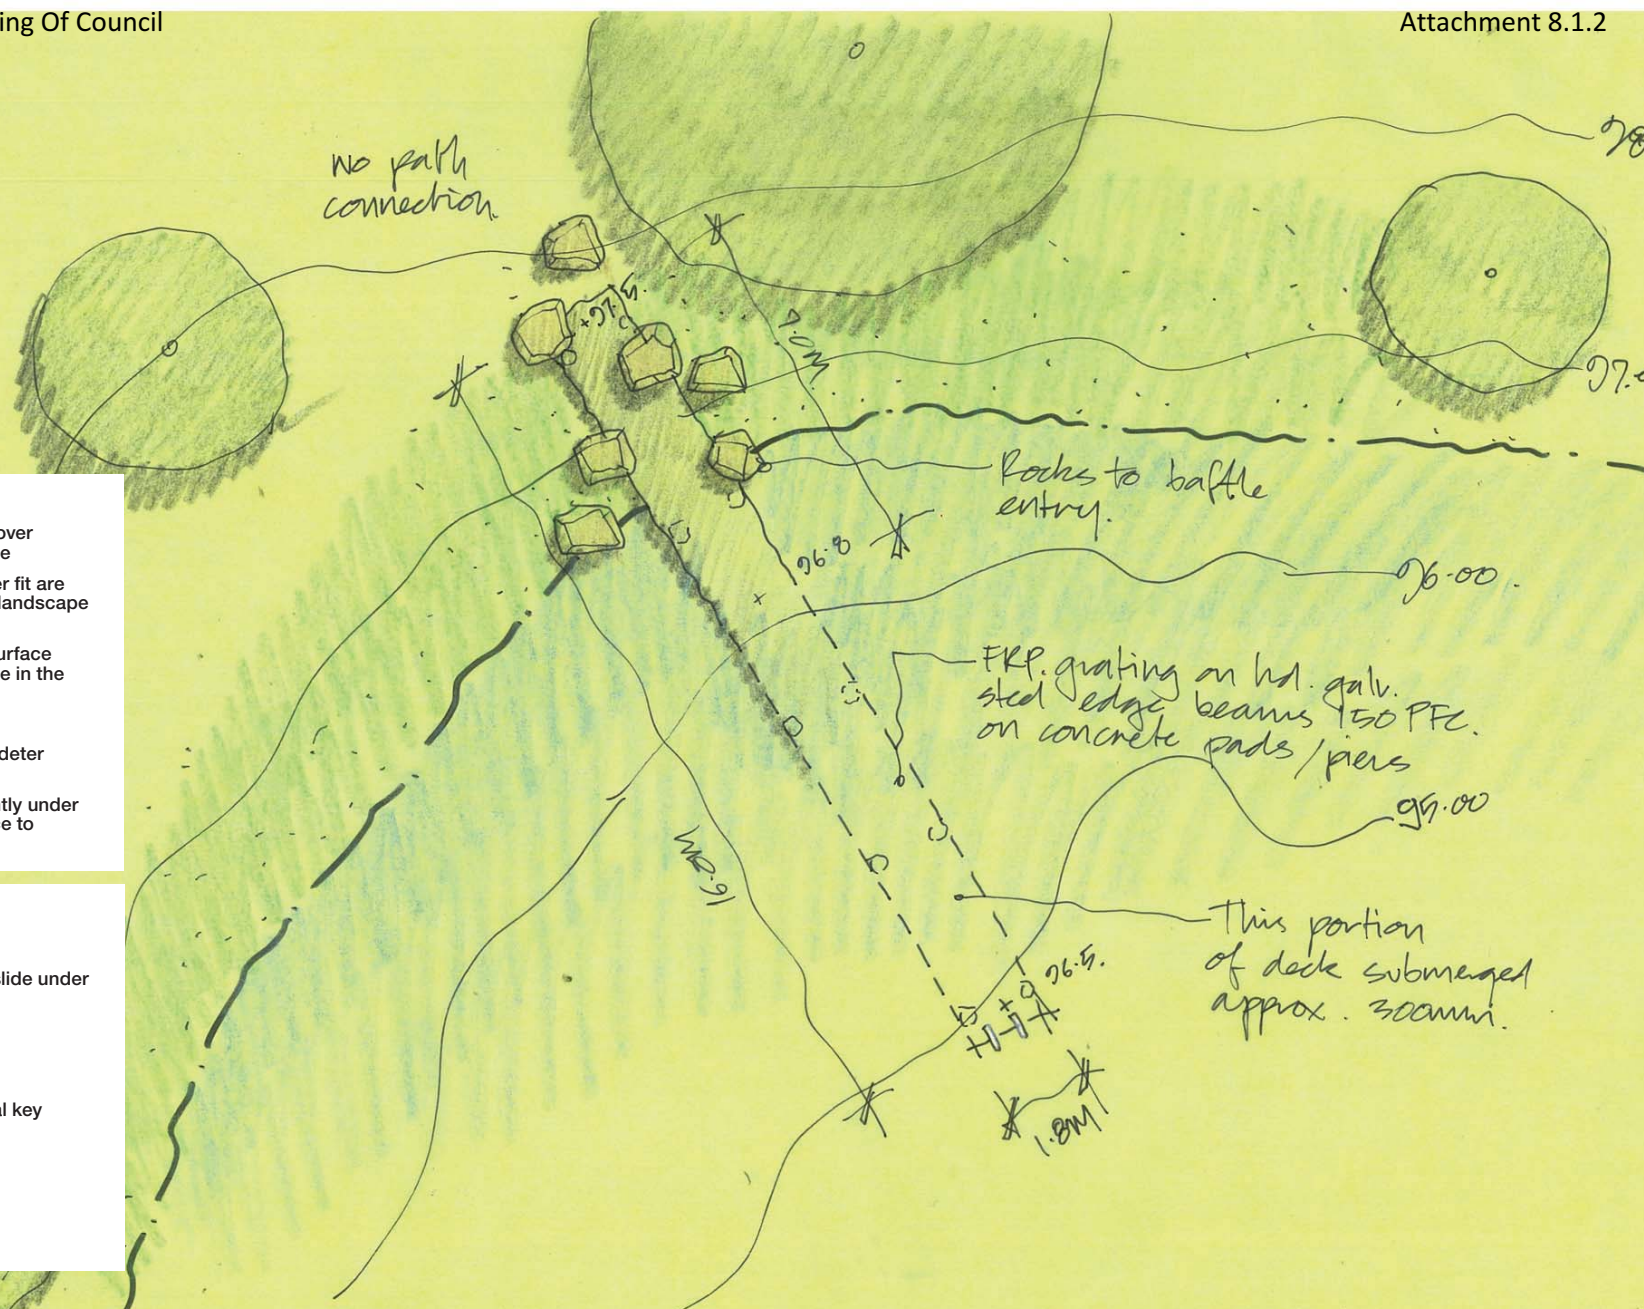 ing Of Council
Attachment 8.1.2
98
No path
connection.
+97.15.
7.0M
97.
Rocks to baffle
entry.
96.8
96.00.
FRP. grating on hd. galv.
steel edge beams 150 PFC.
on concrete pads/piers
95.00
16.2M
This portion
of deck submerged
approx. 300mm.
96.5.
1.8M
over
e
er fit are
landscape
urface
e in the
deter
ntly under
ce to
slide under
al key